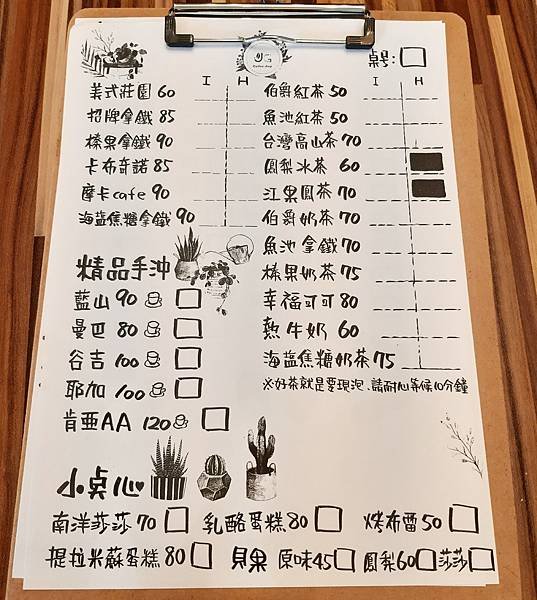 桌号:
I H
美式莊園 60
招牌拿鐵 85
榛果拿鐵 90
卡布奇諾 85
摩卡cafe 90
海盐焦糖拿鐵 90
精品手沖
藍山 90
曼巴 80
谷吉 100
耶加 100
肯亜AA 120
I H
伯爵紅茶 50
魚池紅茶 50
台灣高山茶 70
鳳梨冰茶 60
江果鳳茶 70
伯爵奶茶 70
魚池拿鐵 70
榛果奶茶 75
幸福可可 80
熱牛奶 60
海盐焦糖奶茶 75
※好茶就是要現泡、請耐心等候10分鐘
小点心
南洋莎莎 70 乳酪蛋糕 80 烤布蕾 50
提拉米蘇蛋糕 80 貝果 原味45 鳳梨60 莎莎